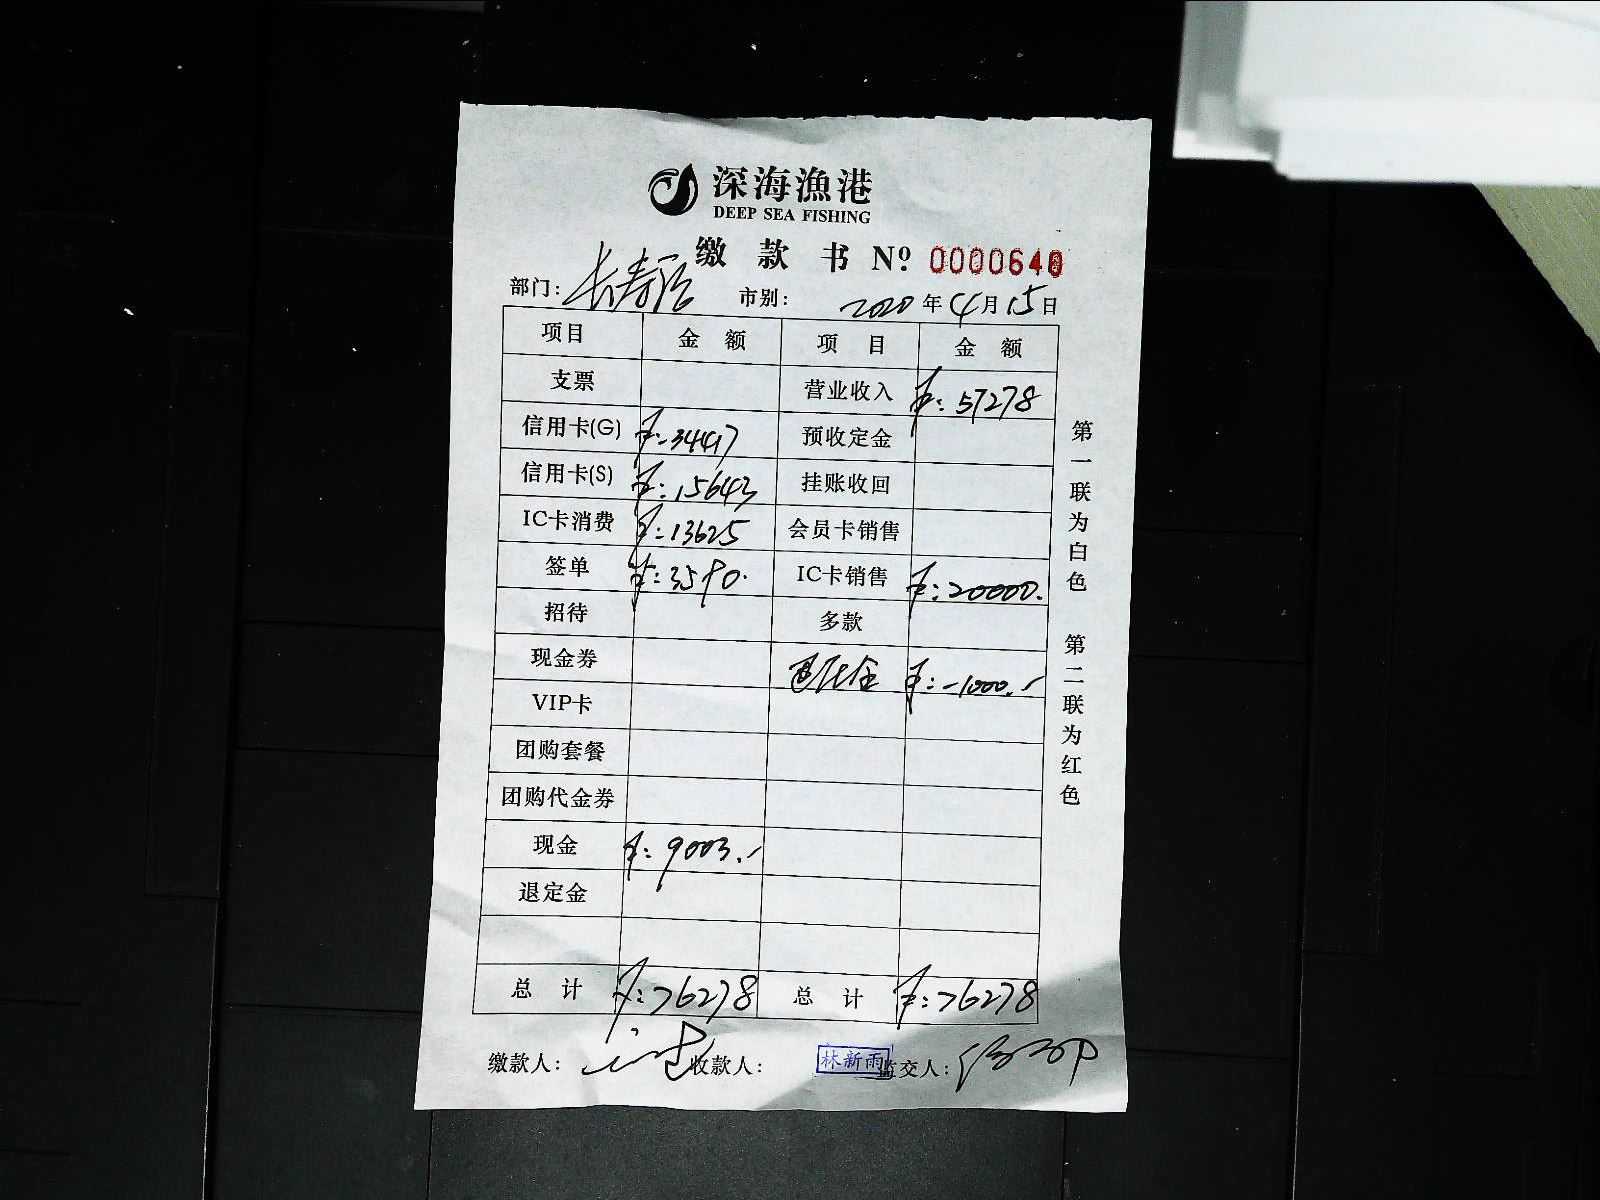 深海漁港
DEEP SEA FISHING
缴款书 Nº 0000640
部门: 长寿路 市别: 2020年4月15日
项目 金额 项目 金额
支票 营业收入 ¥: 57278
信用卡(G) ¥: 34417 预收定金
信用卡(S) ¥: 15643 挂账收回
IC卡消费 ¥: 13625 会员卡销售
签单 ¥: 3590. IC卡销售 ¥: 20000.
招待 多款
现金券 金 ¥: -1000.-
VIP卡
团购套餐
团购代金券
现金 ¥: 9003.-
退定金
总计 ¥: 76278 总计 ¥: 76278
缴款人: 收款人: 林新雨 监交人:
第一联为白色 第二联为红色